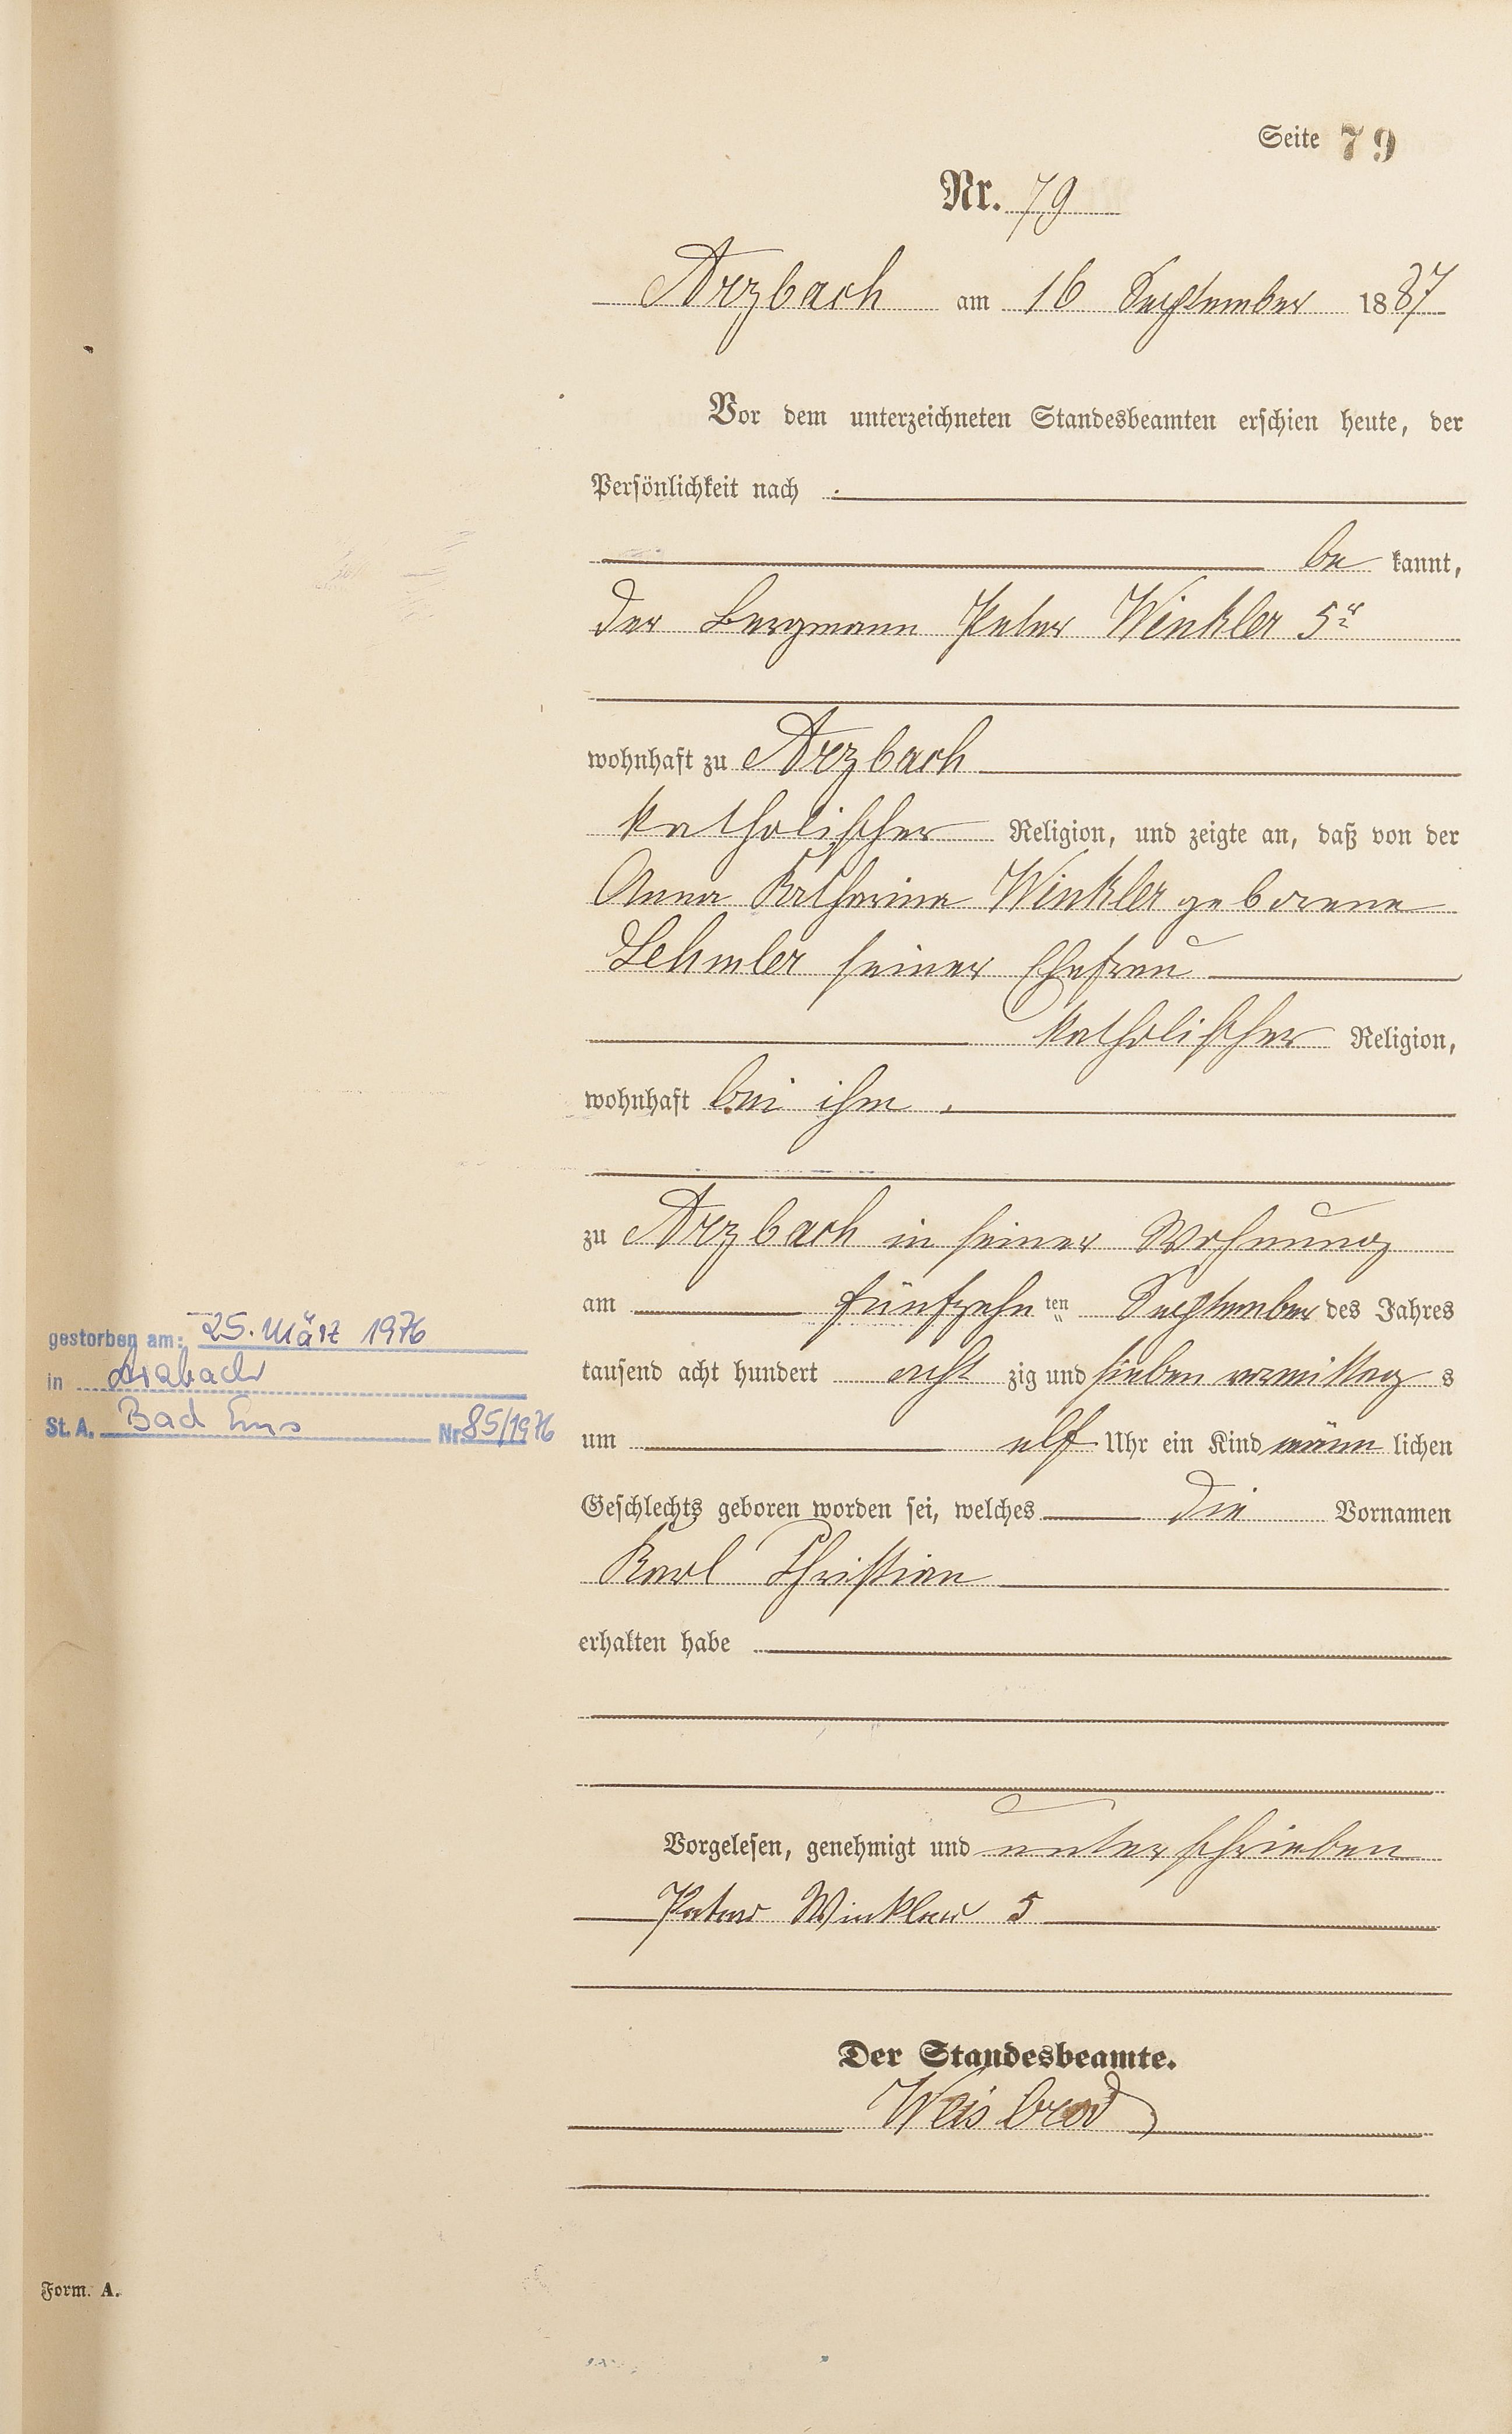 Seite 79
Nr. 79
Arzbach am 16 September 1887
Vor dem unterzeichneten Standesbeamten erschien heute, der
Persönlichkeit nach
be kannt,
der Bergmann Peter Winkler 5r
wohnhaft zu Arzbach
katholischer Religion, und zeigte an, daß von der
Anna Katharina Winkler geborene
Lehmler seiner Ehefrau
katholischer Religion,
wohnhaft bei ihm.
zu Arzbach in seiner Wohnung
am fünfzehn ten September des Jahres
tausend acht hundert acht zig und sieben vormittag s
um elf Uhr ein Kind männ lichen
Geschlechts geboren worden sei, welches die Vornamen
Karl Christian
erhalten habe
gestorben am: 25. März 1976
in Arzbach
St. A. Bad Ems Nr. 85/1976
Vorgelesen, genehmigt und unterschrieben
Peter Winkler 5
Der Standesbeamte.
Weisbrod
Form. A.